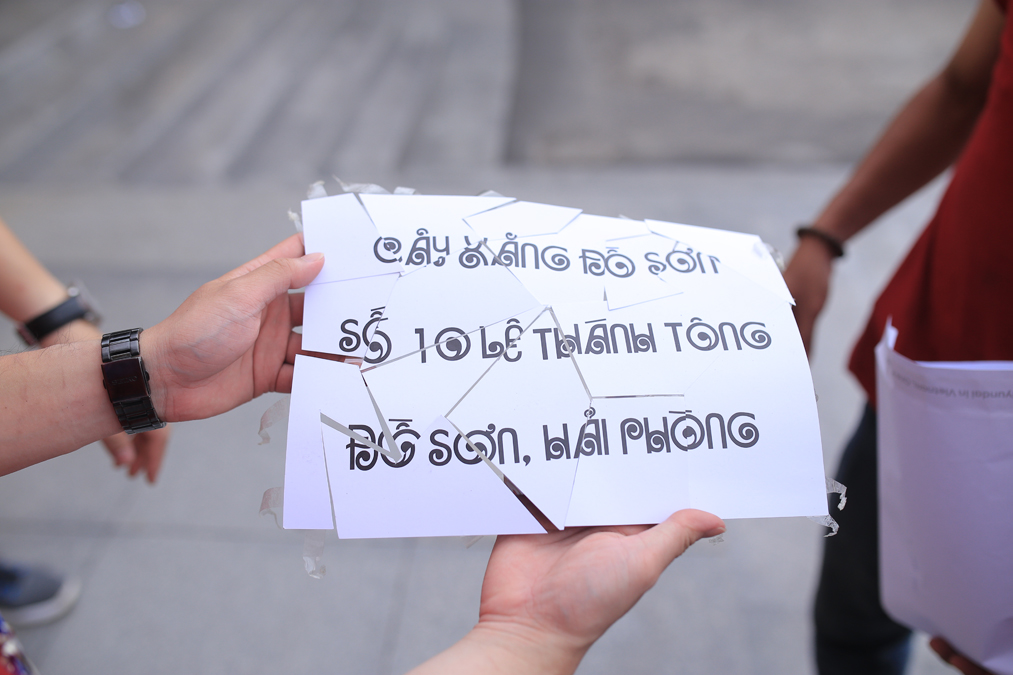 CÂY XĂNG ĐỒ SƠN
SỐ 10 LÊ THÁNH TÔNG
ĐỒ SƠN, HẢI PHÒNG
yundai in Vietnam